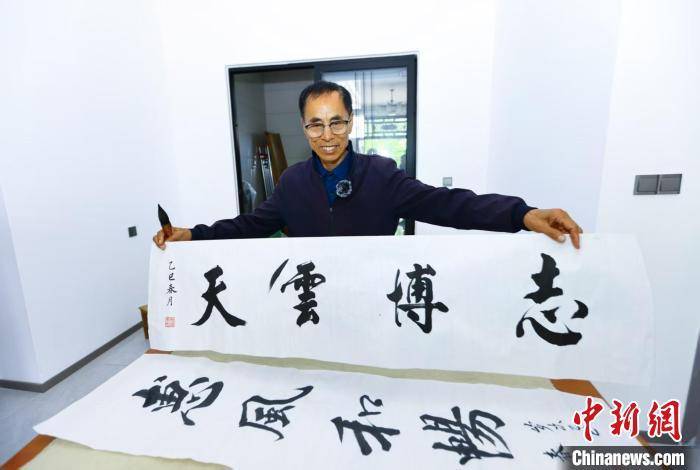 志博雲天
乙巳春月
惠風和暢
中新網
Chinanews.com